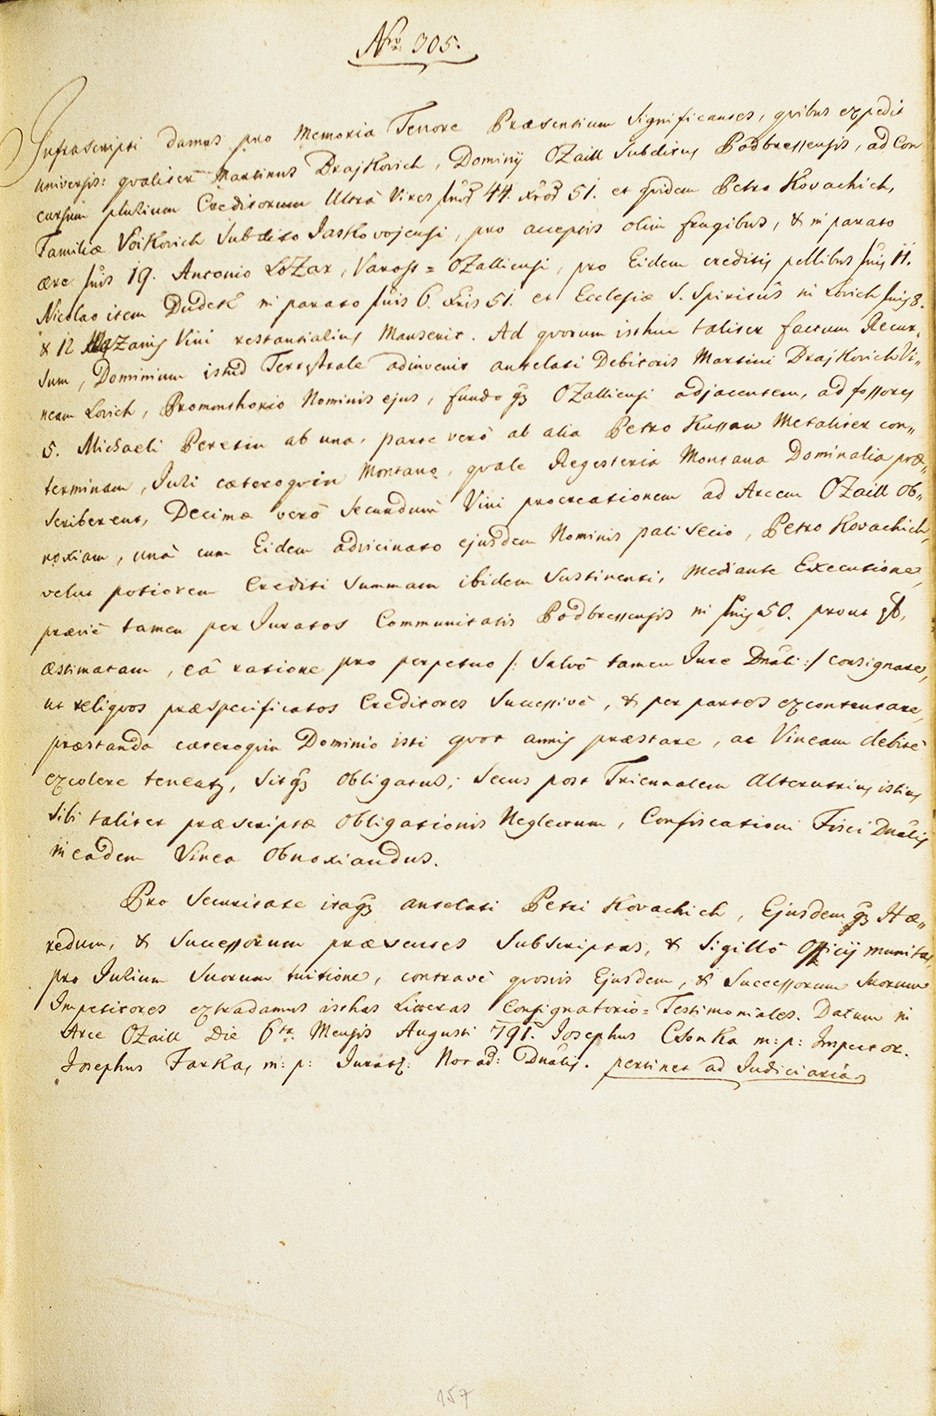 Nro. 305.
Infrascripti damus pro Memoria Tenore Præsentium Significantes, quibus expedit
universis: qualiter Martinus Brajkovich, Dominij OZaill Subditus Podbressensis, ad Con
cursum plurium Creditorum Ultra Vires fnos 44. xros 51. et quidem Petro Kovachich,
Familiæ Voikovich Subdito Jaskovojensi, pro acceptis olim frugibus, & in parato
ære fnis 19. Antonio LoZar, Vaross = OZalliensi, pro Eidem creditis pellibus fnis 11.
Nicolao item Dudesh in parato fnis 6. xris 51. et Ecclesiæ S. Spiritûs in Lovich fnis 8.
& 12 Vini restantialius Mansent. Ad quorum isthuc taliter factum Recur„
sum, Dominium istud Terrestrale adinvenit antelati Debitoris Martini Brajkovich Vi„
neam Lovich, Promonthorio Nominis ejus, fundo qz OZalliensi adjacentem, ad fossores
5. Michaeli Peretin ab una, parte verò ab alia Petro Kussan Metaliter con„
terminam, Juli cæteroquin Montanq, quale Regesteria Montana Dominalia præ„
scriberent, Decimæ verò Secundum Vini procreationem ad Arcem OZaill ob„
noxiam, unà cum Eidem advicinato ejusdem Nominis pali secio, Petro Kovachich,
velut potiorem Crediti Summam ibidem Sustinenti, Mediante Executione,
præviè tamen per Juratos Communitatis Podbressensis in fnis 50. prout
æstimatam, eâ ratione pro perpetuo /: Salvô tamen Jure Dnali :/ consignare,
ut reliquos præspecificatos Creditores Successivè, & per partes excontentare,
præstanda cæteroquin Dominio isti quot annis præstare, ac Vineam debitè
excolere teneatz, Sitqz obligatus; Secus post Triennalem Alterutrius istius
Sibi taliter præscriptæ Obligationis Neglectum, Confiscationi Fisci Dnalis
in eadem Vinea Obnoxiandus.
Pro Securitate itaqz antelati Petri Kovachich, Ejusdem qz Hæ„
redum, & Successorum præsentes Subscriptas, & Sigillô Officij munitas,
pro Jurium Suorum tuitione, contravè quosvis Ejusdem, & Successorum Suorum
Impetitores extradamus isthas Litteras Consignatorio = Testimoniales. Datum in
Arce OZaill Die 6ta Mensis Augusti 791. Josephus Csonka m: p: Inspector.
Josephus Farkas m: p: Juratz: Notað: Dnalis. pertinet ad Judiciaria
157